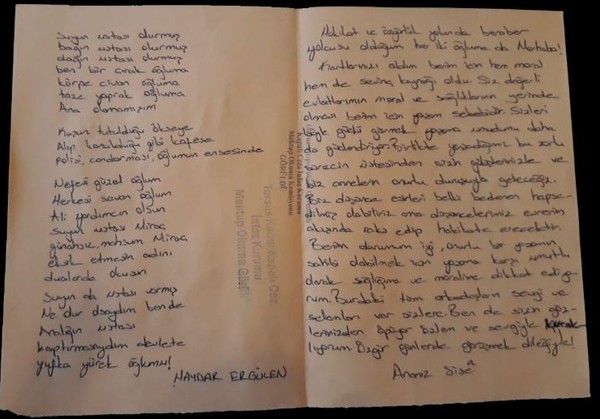 Suyun ustası olurmuş
bağın ustası olurmuş
dağın ustası olurmuş
ben bir çırak oğluma
körpe civan oğluma
taze yaprak oğluma
Ana olamamışım
Kuşun tutulduğu ökseye
Alıp konulduğu gibi kafese
polisi, candarması, oğlumun ensesinde
Nefesi güzel oğlum
Herkesi savan oğlum
Ali yardımcın olsun
Suyun ustası Miraç
günahsız, mahsum Miraç
eksik etmesin adını
dualarda okusun
Suyun da ustası varmış
Ne olur olsaydım ben de
Analığın ustası
kaptırmasaydım devlete
yufka yürek oğlumu!
HAYDAR ERGÜLEN
Hakikat ve özgürlük yolunda beraber
yolcusu olduğum her iki oğluma da Merhaba!
Kartlarınızı aldım benim için hem moral
hem de sevinç kaynağı oldu. Siz değerli
evlatlarımın moral ve sağlıklarının yerinde
olması benim için yaşam sebebidir. Sizleri
böyle güçlü görmek yaşama umudumu daha
da güçlendiriyor. Birlikte yaşadığımız bu zorlu
sürecin üstesinden sizin gülüşlerinizle ve
biz annelerin onurlu duruşuyla geleceğiz.
Biz düşünce esirleri belki bedenen hapse-
dilmiş olabiliriz ama düşüncelerimiz evrenin
akışında raks edip hakikate erecektir.
Benim durumum iyi, onurlu bir yaşamın
sahibi olabilmek için yaşama karşı umutlu
olarak sağlığıma ve moralime dikkat ediyo-
rum. Burdaki tüm arkadaşların sevgi ve
selamları var sizlere. Ben de sizin göz-
lerinizden öpüyor özlem ve sevgiyle kucak
lıyorum. Özgür günlerde görüşmek dileğiyle!
Ananız Sisê
Tarsus Kapalı Kadın
İnfaz Kurumu
Mektup Okuma
Kapalı Ceza İnfaz Kurumu
Mektup Okuma Komisyonu
GÖRÜLDÜ